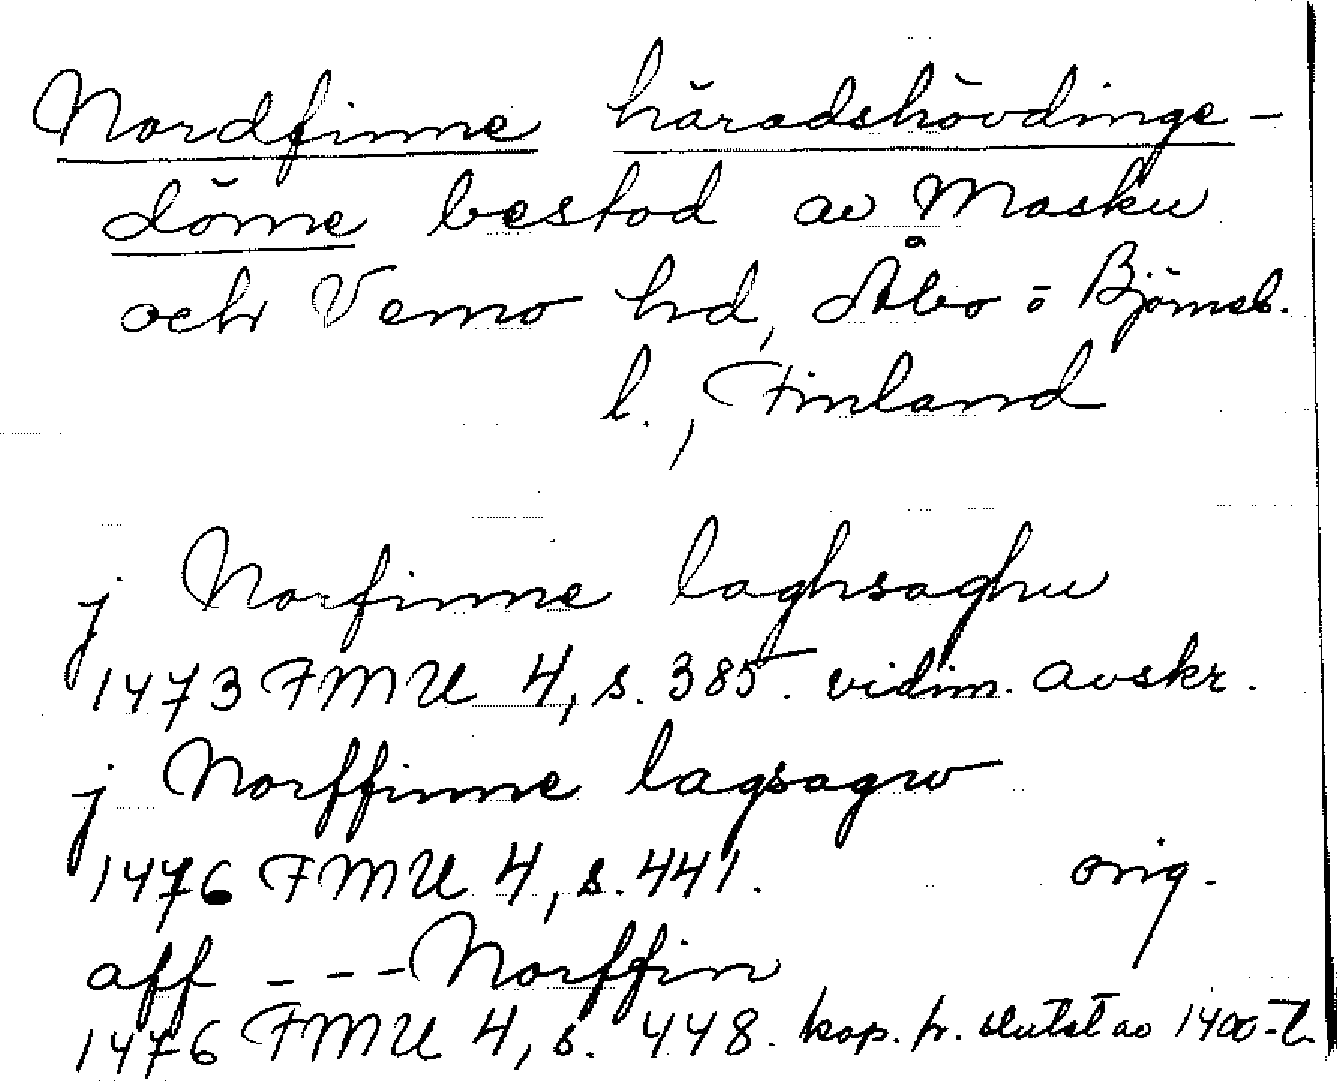 Nordfinne häradshövdinge-
döme bestod av Masku
och Vemo hd, Åbo o Björneb.
l., Finland
j Norfinne laghsaghu
1473 FMU 4, s. 385. vidim. avskr.
j Norffinne lagsagw
1476 FMU 4, s. 441. orig.
aff - - - Norffin
1476 FMU 4, s. 448. kop. fr. slutet av 1400-t.